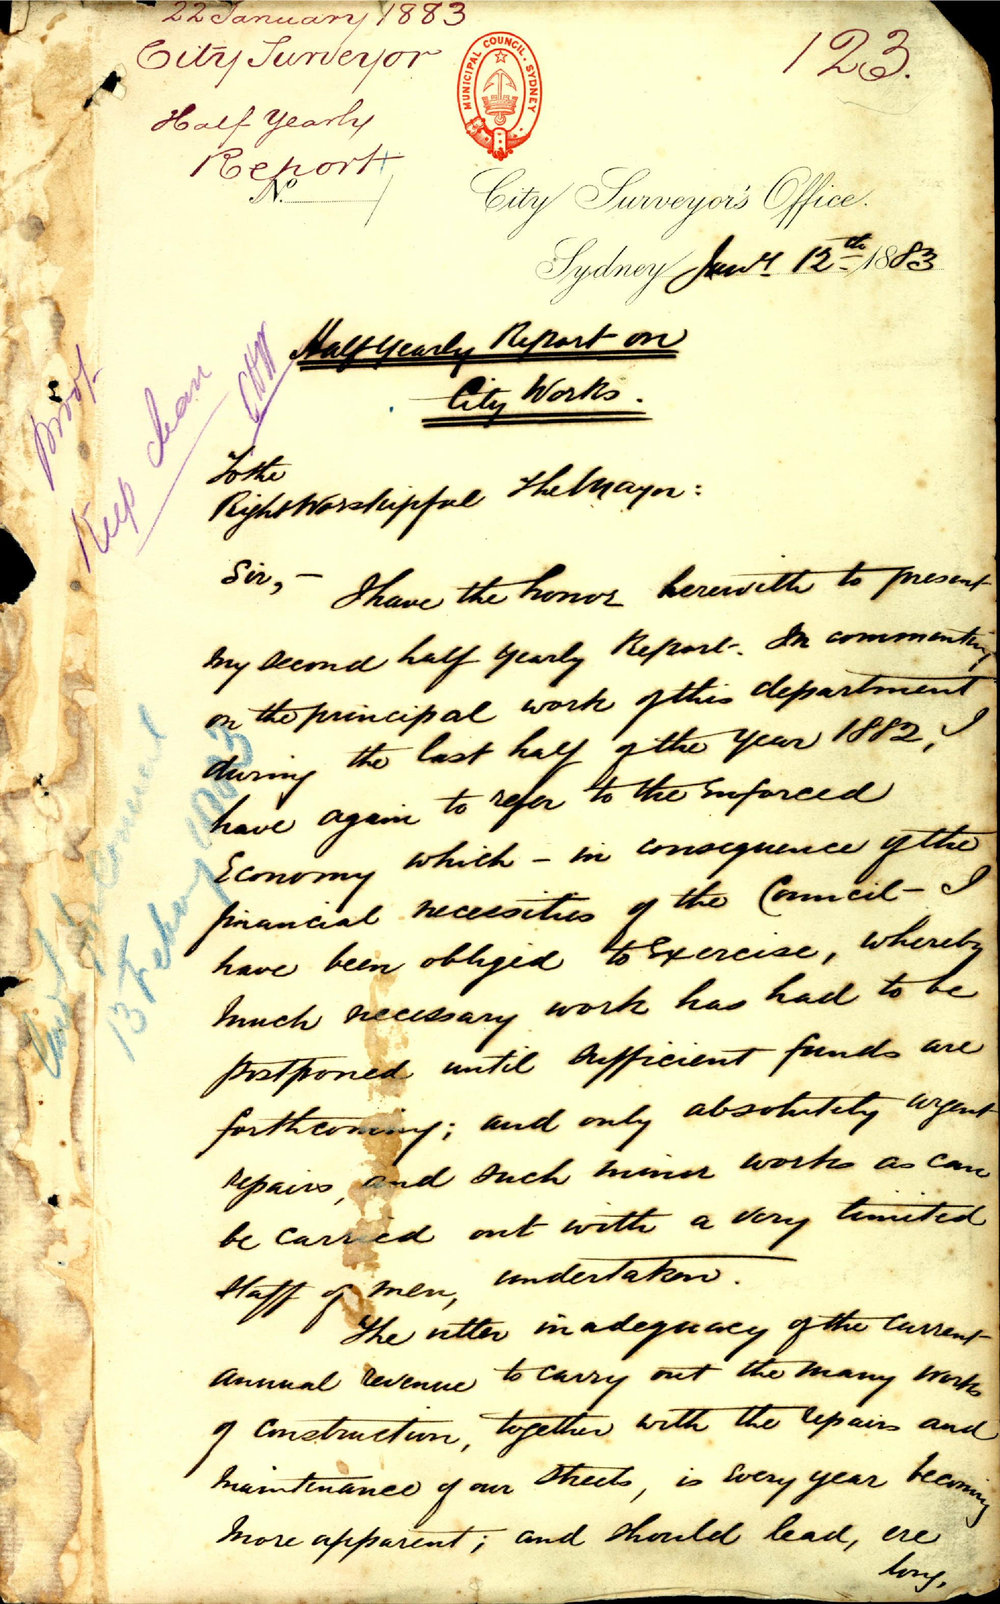 22 January 1883
City Surveyor
Half Yearly
Report
No.
123.
MUNICIPAL COUNCIL. SYDNEY
City Surveyor's Office.
Sydney Jany 12th 1883
Half Yearly Report on
City Works.
Proof
Keep clean
To the
Right Worshipful The Mayor:
Sir,— I have the honor herewith to present
my second half yearly Report. In commenting
on the principal work of this department
during the last half of the year 1882, I
have again to refer to the enforced
Economy which – in consequence of the
financial necessities of the Council – I
have been obliged to Exercise, whereby
much necessary work has had to be
postponed until sufficient funds are
forthcoming; and only absolutely urgent
repairs, and such minor works as can
be carried out with a very limited
staff of men, undertaken.
The utter inadequacy of the current
annual revenue to carry out the many works
of construction, together with the repairs and
maintenance of our streets, is every year becoming
more apparent; and should lead, ere
long,
Council
13 Feby 1883